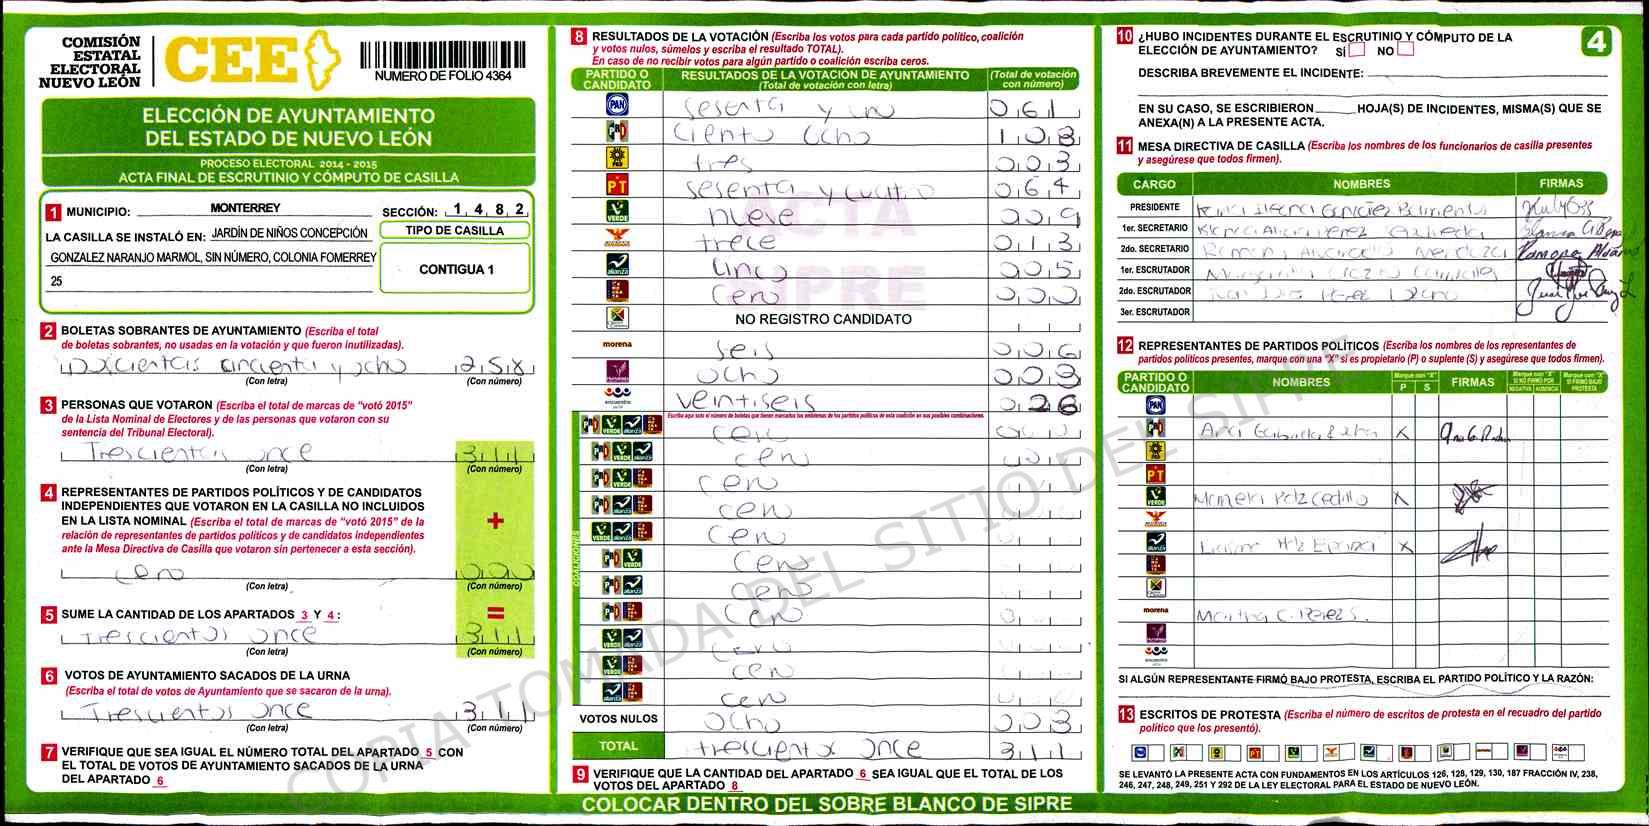 COMISIÓN
ESTATAL
ELECTORAL
NUEVO LEÓN
CEE
NUMERO DE FOLIO 4364
ELECCIÓN DE AYUNTAMIENTO
DEL ESTADO DE NUEVO LEÓN
PROCESO ELECTORAL 2014 - 2015
ACTA FINAL DE ESCRUTINIO Y CÓMPUTO DE CASILLA
1 MUNICIPIO: MONTERREY SECCIÓN: 1 4 8 2
LA CASILLA SE INSTALÓ EN: JARDÍN DE NIÑOS CONCEPCIÓN
GONZALEZ NARANJO MARMOL, SIN NÚMERO, COLONIA FOMERREY
25
TIPO DE CASILLA
CONTIGUA 1
2 BOLETAS SOBRANTES DE AYUNTAMIENTO (Escriba el total
de boletas sobrantes, no usadas en la votación y que fueron inutilizadas).
cincuenta y ocho 258
(Con letra) (Con número)
3 PERSONAS QUE VOTARON (Escriba el total de marcas de "votó 2015"
de la Lista Nominal de Electores y de las personas que votaron con su
sentencia del Tribunal Electoral).
Trescientos once 311
(Con letra) (Con número)
4 REPRESENTANTES DE PARTIDOS POLÍTICOS Y DE CANDIDATOS
INDEPENDIENTES QUE VOTARON EN LA CASILLA NO INCLUIDOS
EN LA LISTA NOMINAL (Escriba el total de marcas de "votó 2015" de la
relación de representantes de partidos políticos y de candidatos independientes
ante la Mesa Directiva de Casilla que votaron sin pertenecer a esta sección).
+
cero 000
(Con letra) (Con número)
5 SUME LA CANTIDAD DE LOS APARTADOS 3 Y 4 : =
Trescientos once 311
(Con letra) (Con número)
6 VOTOS DE AYUNTAMIENTO SACADOS DE LA URNA
(Escriba el total de votos de Ayuntamiento que se sacaron de la urna).
Trescientos once 311
(Con letra) (Con número)
7 VERIFIQUE QUE SEA IGUAL EL NÚMERO TOTAL DEL APARTADO 5 CON
EL TOTAL DE VOTOS DE AYUNTAMIENTO SACADOS DE LA URNA
DEL APARTADO 6
8 RESULTADOS DE LA VOTACIÓN (Escriba los votos para cada partido político, coalición
y votos nulos, súmelos y escriba el resultado TOTAL).
En caso de no recibir votos para algún partido o coalición escriba ceros.
PARTIDO O CANDIDATO RESULTADOS DE LA VOTACIÓN DE AYUNTAMIENTO (Total de votación con letra) (Total de votación con número)
PAN sesenta y un 061
PRD ciento ocho 108
PRD tres 003
PT sesenta y cuatro 064
VERDE nueve 009
trece 013
alianza cinco 005
cero 000
NO REGISTRO CANDIDATO
morena seis 006
ocho 003
encuentro veintiseis 026
Escriba aquí solo el número de boletas que tienen marcados los emblemas de los partidos políticos de esta coalición en sus posibles combinaciones.
COALICIONES
cero
cero
cero
cero
cero
cero
cero
cero
cero
cero
cero
VOTOS NULOS ocho 003
TOTAL trescientos once 311
9 VERIFIQUE QUE LA CANTIDAD DEL APARTADO 6 SEA IGUAL QUE EL TOTAL DE LOS
VOTOS DEL APARTADO 8
COLOCAR DENTRO DEL SOBRE BLANCO DE SIPRE
ACTA
SIPRE
COPIA TOMADA DEL SITIO DEL SIPRE
4
10 ¿HUBO INCIDENTES DURANTE EL ESCRUTINIO Y CÓMPUTO DE LA
ELECCIÓN DE AYUNTAMIENTO? SÍ NO
DESCRIBA BREVEMENTE EL INCIDENTE:
EN SU CASO, SE ESCRIBIERON HOJA(S) DE INCIDENTES, MISMA(S) QUE SE
ANEXA(N) A LA PRESENTE ACTA.
11 MESA DIRECTIVA DE CASILLA (Escriba los nombres de los funcionarios de casilla presentes
y asegúrese que todos firmen).
CARGO NOMBRES FIRMAS
PRESIDENTE
1er. SECRETARIO
2do. SECRETARIO
1er. ESCRUTADOR
2do. ESCRUTADOR
3er. ESCRUTADOR
12 REPRESENTANTES DE PARTIDOS POLÍTICOS (Escriba los nombres de los representantes de
partidos políticos presentes, marque con una "X" si es propietario (P) o suplente (S) y asegúrese que todos firmen).
PARTIDO O CANDIDATO NOMBRES Marque con "X" P S FIRMAS Marque con "X" SI NO FIRMÓ POR NEGATIVA AUSENCIA Marque con "X" SI FIRMÓ BAJO PROTESTA
PAN
Ana Gabriela X
PT
VERDE X
alianza X
morena Martha C. Perez S.
SI ALGÚN REPRESENTANTE FIRMÓ BAJO PROTESTA, ESCRIBA EL PARTIDO POLÍTICO Y LA RAZÓN:
13 ESCRITOS DE PROTESTA (Escriba el número de escritos de protesta en el recuadro del partido
político que los presentó).
SE LEVANTÓ LA PRESENTE ACTA CON FUNDAMENTOS EN LOS ARTÍCULOS 126, 128, 129, 130, 187 FRACCIÓN IV, 238,
246, 247, 248, 249, 251 Y 292 DE LA LEY ELECTORAL PARA EL ESTADO DE NUEVO LEÓN.